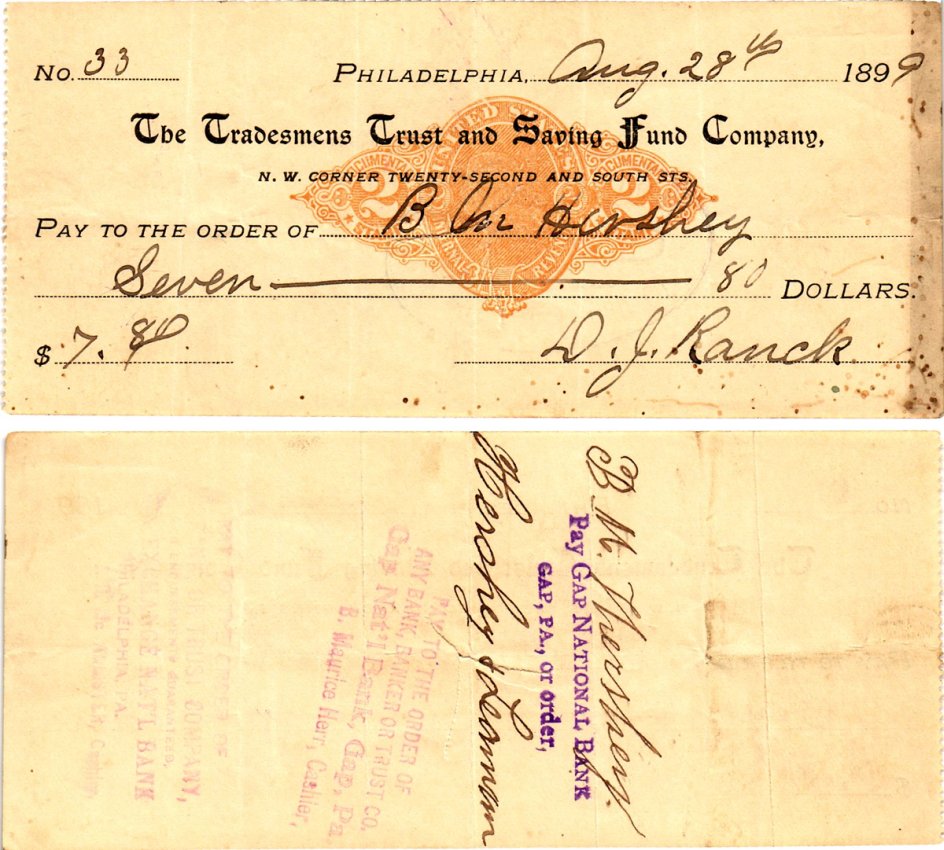 No. 33 PHILADELPHIA, Aug. 28th 1899
The Tradesmens Trust and Saving Fund Company,
N. W. CORNER TWENTY-SECOND AND SOUTH STS.
UNITED STATES
DOCUMENTARY 2 2 DOCUMENTARY
INTERNAL REVENUE
PAY TO THE ORDER OF B M Hershey
Seven 80 DOLLARS.
$ 7.80
D. J. Ranck
B M. Hershey
Pay GAP NATIONAL BANK
GAP, PA., or order,
Hershey & Leaman
PAY TO THE ORDER OF
ANY BANK, BANKER OR TRUST CO.
Gap Nat'l Bank, Gap, Pa
B. Maurice Herr, Cashier,
COMPANY,
NAT'L BANK
PHILADELPHIA, PA.
Cashier